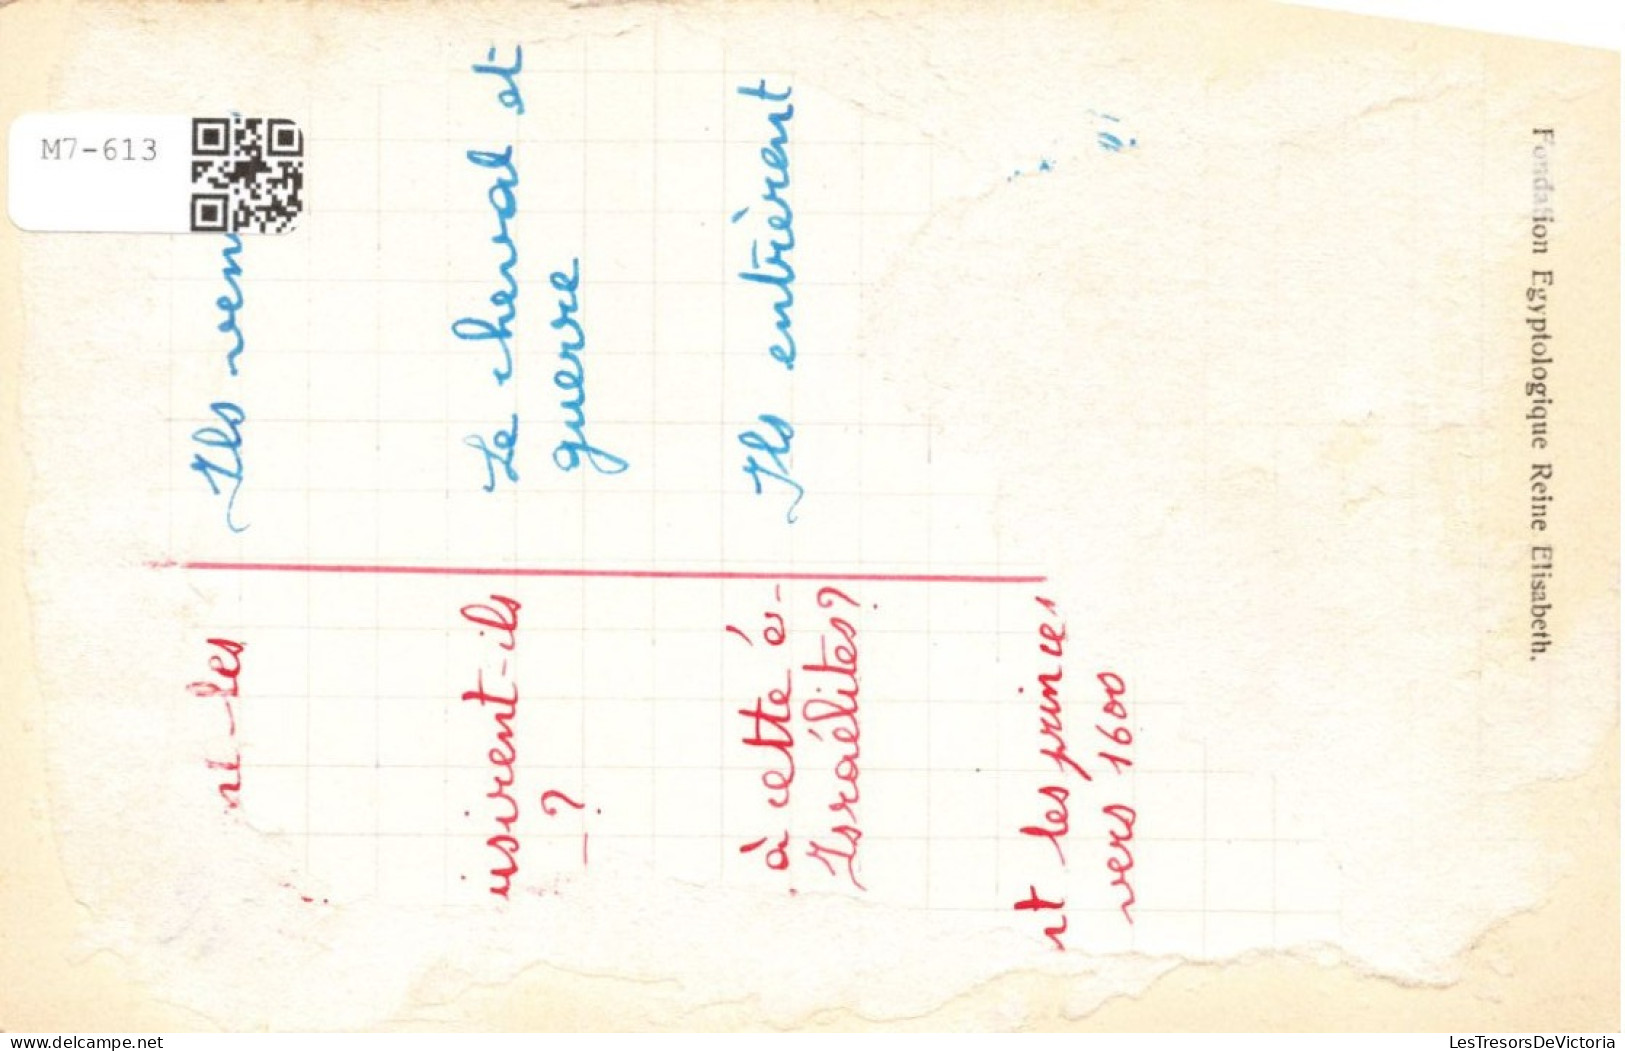 M7-613
-les
Ils
-ils
?
Le cheval et
guerre
à cette é-
Israélites ?
Ils entrèrent
les princes
vers 1600
Fondation Egyptologique Reine Elisabeth.
www.delcampe.net
LesTresorsDeVictoria